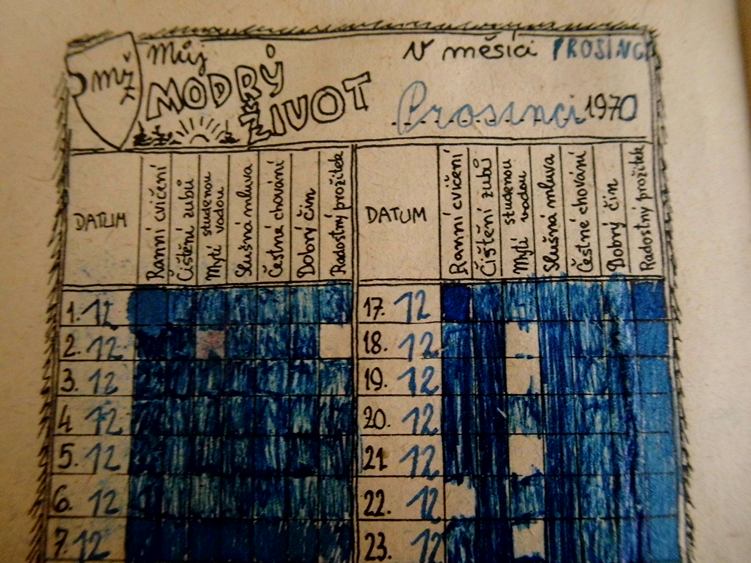 mž Můj
MODRÝ
ŽIVOT
V měsíci PROSINCI
Prosinci 1970
DATUM Ranní cvičení Čištění zubů Mytí studenou vodou Slušná mluva Čestné chování Dobrý čin Radostný prožitek
1. 12
2. 12
3. 12
4 12
5. 12
6. 12
7. 12
DATUM Ranní cvičení Čištění zubů Mytí studenou vodou Slušná mluva Čestné chování Dobrý čin Radostný prožitek
17. 12
18. 12
19. 12
20. 12
21. 12
22. 12
23. 12